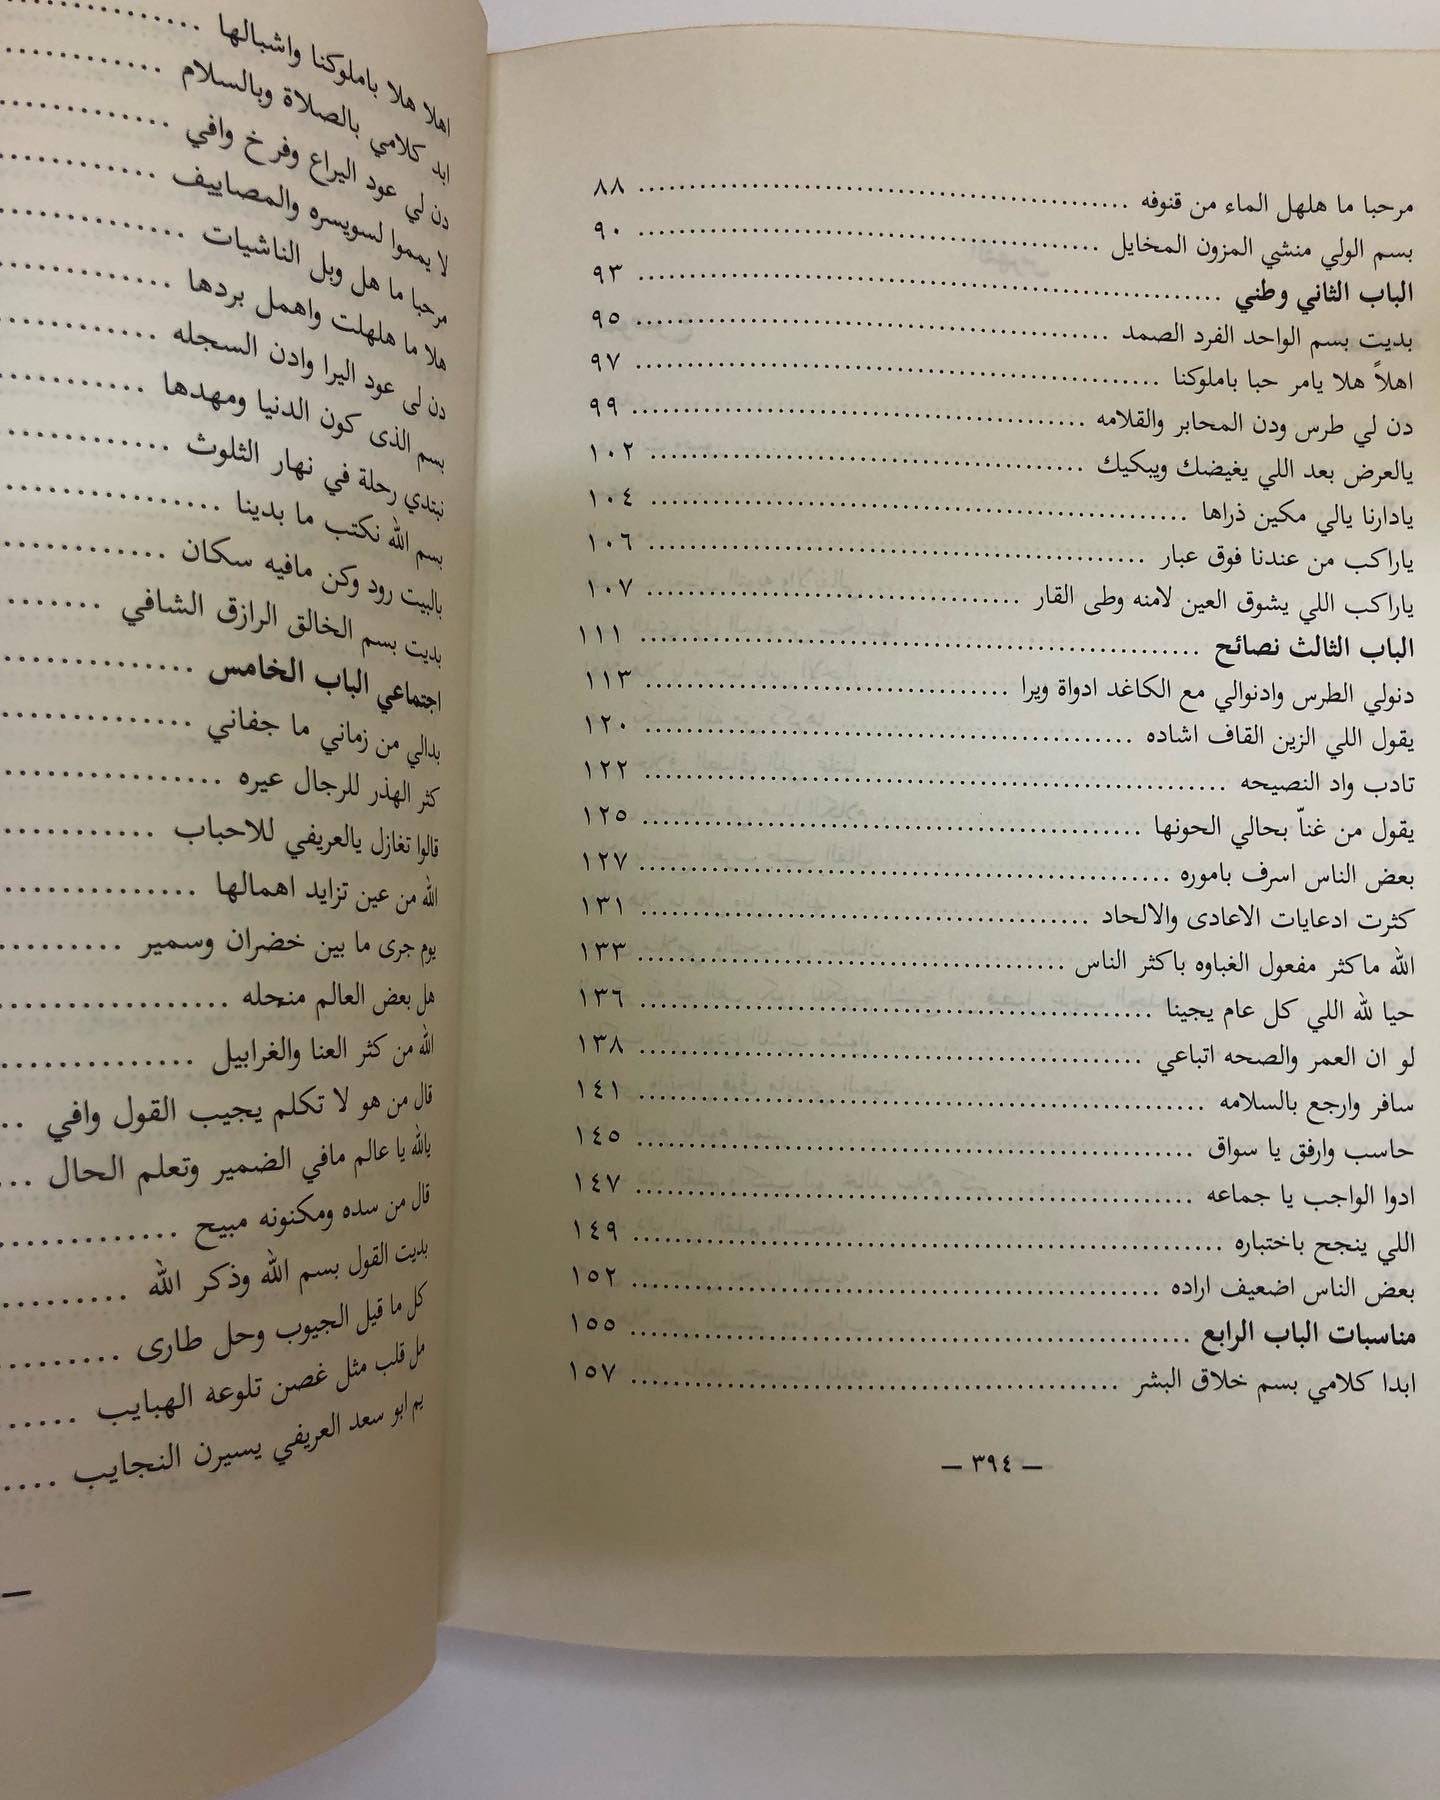 مرحبا ما هلهل الماء من قنوفه ........ ٨٨
بسم الولي منشي المزون المخايل ........ ٩٠
الباب الثاني وطني ........ ٩٣
بديت بسم الواحد الفرد الصمد ........ ٩٥
اهلاً هلا يامر حبا باملوكنا ........ ٩٧
دن لي طرس ودن المحابر والقلامه ........ ٩٩
يالعرض بعد اللي يغيضك ويبكيك ........ ١٠٢
يادارنا يالي مكين ذراها ........ ١٠٤
ياراكب من عندنا فوق عبار ........ ١٠٦
ياراكب اللي يشوق العين لامنه وطى القار ........ ١٠٧
الباب الثالث نصائح ........ ١١١
دنولي الطرس وادنوالي مع الكاغد ادواة ويرا ........ ١١٣
يقول اللي الزين القاف اشاده ........ ١٢٠
تادب واد النصيحه ........ ١٢٢
يقول من غناّ بحالي الحونها ........ ١٢٥
بعض الناس اسرف باموره ........ ١٢٧
كثرت ادعايات الاعادى والالحاد ........ ١٣١
الله ماكثر مفعول الغباوه باكثر الناس ........ ١٣٣
حيا لله اللي كل عام يجينا ........ ١٣٦
لو ان العمر والصحه اتباعي ........ ١٣٨
سافر وارجع بالسلامه ........ ١٤١
حاسب وارفق يا سواق ........ ١٤٥
ادوا الواجب يا جماعه ........ ١٤٧
اللي ينجح باختباره ........ ١٤٩
بعض الناس اضعيف اراده ........ ١٥٢
مناسبات الباب الرابع ........ ١٥٥
ابدا كلامي بسم خلاق البشر ........ ١٥٧
— ٣٩٤ —
اهلا هلا باملوكنا واشبالها ........
ابد كلامي بالصلاة وبالسلام ........
دن لي عود اليراع وفرخ وافي ........
لا يمموا لسويسره والمصاييف ........
مرحبا ما هل وبل الناشيات ........
هلا ما هلهلت واهمل بردها ........
دن لى عود اليرا وادن السجله ........
بسم الذى كون الدنيا ومهدها ........
نبتدي رحلة في نهار الثلوث ........
بسم الله نكتب ما بدينا ........
بالبيت رود وكن مافيه سكان ........
بديت بسم الخالق الرازق الشافي ........
اجتماعي الباب الخامس ........
بدالي من زماني ما جفاني ........
كثر الهذر للرجال عيره ........
قالوا تغازل يالعريفي للاحباب ........
الله من عين تزايد اهمالها ........
يوم جرى ما بين خضران وسمير ........
هل بعض العالم منحله ........
الله من كثر العنا والغرابيل ........
قال من هو لا تكلم يجيب القول وافي ..
يالله يا عالم مافي الضمير وتعلم الحال ...
قال من سده ومكنونه مبيح ........
بديت القول بسم الله وذكر الله ........
كل ما قيل الجيوب وحل طارى ........
مل قلب مثل غصن تلوعه الهبايب ......
يم ابو سعد العريفي يسيرن النجايب ....